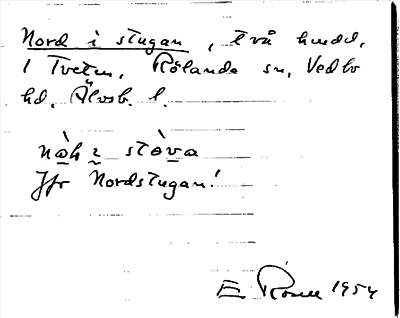 Nord i stugan, två hmdd,
i Tveten, Rölanda sn, Vedbo
hd, Älvsb. l.
nàh ı stòva
Jfr Nordstugan!
E Rosell 1954